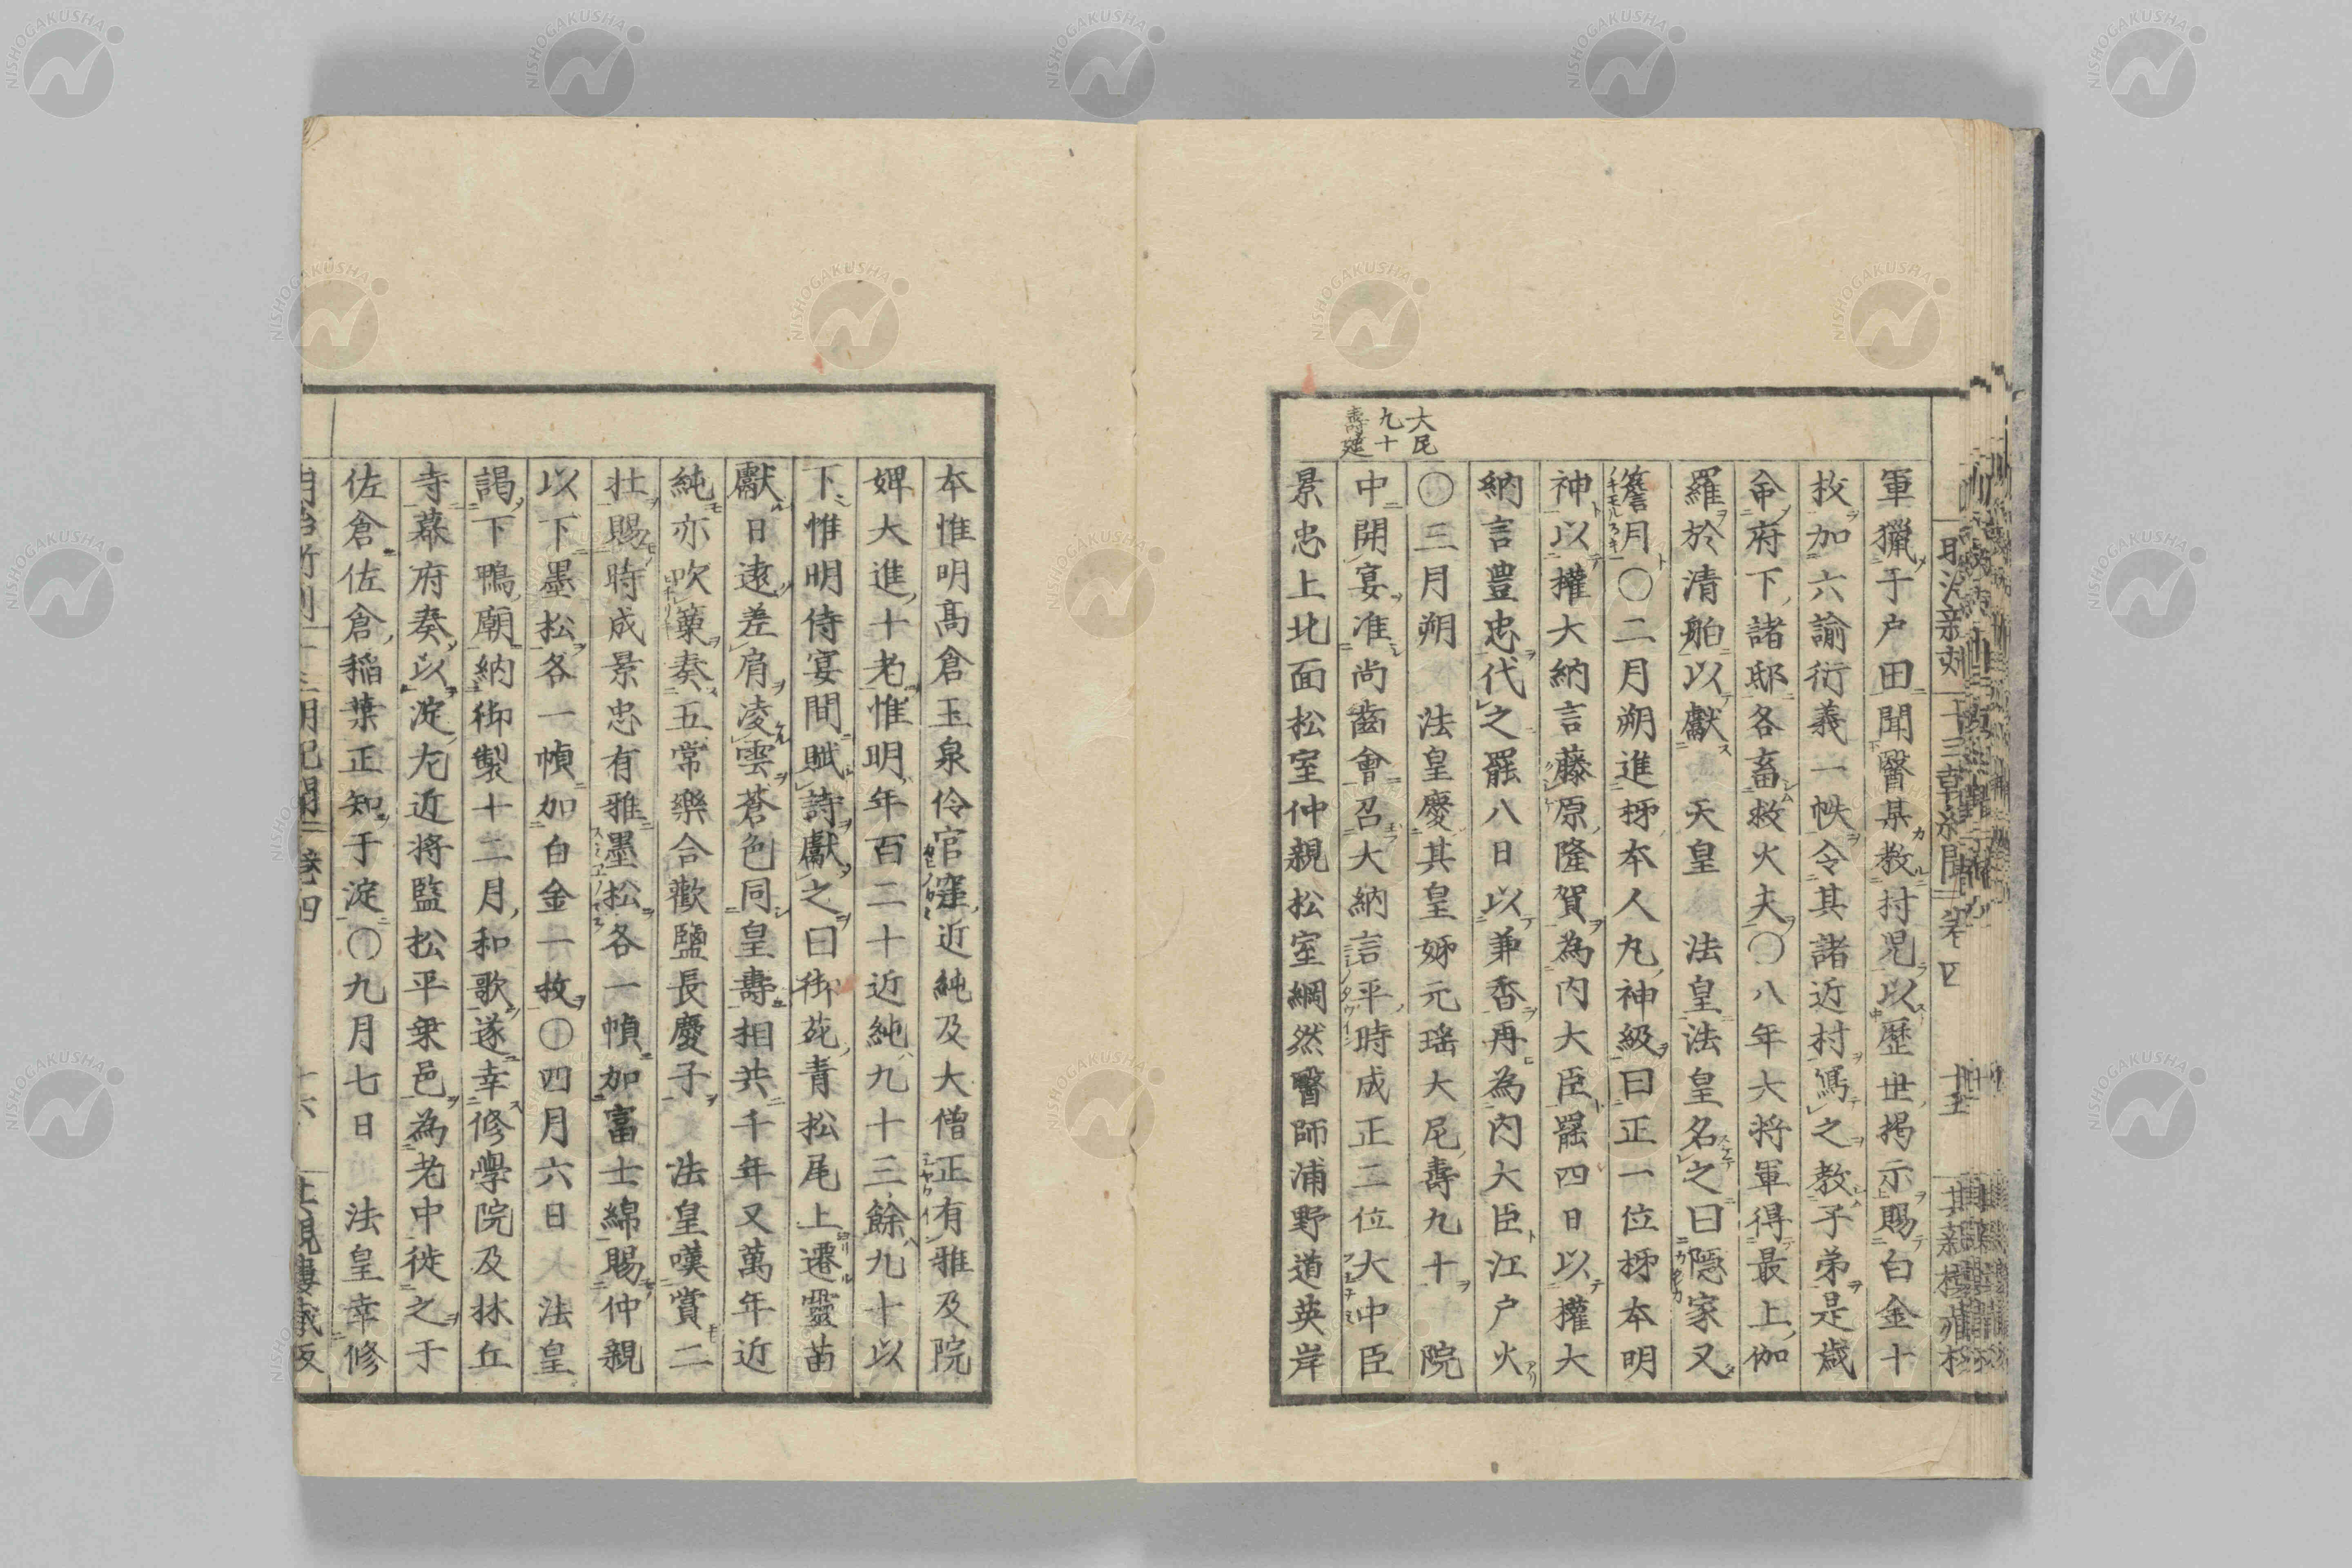 大尼
九十
壽筵
軍獵于户田聞醫某教村児以歴世掲示賜白金十
枚加六諭衍義一帙令其諸近村寫之教子弟是歳
命府下諸邸各畜救火夫〇八年大将軍得最上伽
羅於清舶以獻 天皇 法皇法皇名之曰隱家又
簷月〇二月朔進栂本人丸神級曰正一位栂本明
神以權大納言藤原隆賀為内大臣罷四日以權大
納言豊忠代之罷八日以兼香再為内大臣江户火
〇三月朔 法皇慶其皇姊元瑶大尼壽九十 院
中開宴准尚齒會召大納言平時成正二位大中臣
景忠上北面松室仲親松室綱然醫師浦野道英岸
本惟明髙倉玉泉伶官窪近純及大僧正有雅及院
婢大進十老惟明年百二十近純九十三餘九十以
下惟明侍宴間賦詩獻之曰御苑青松尾上遷靈苗
獻日遠差肩凌雲蒼色同皇壽相共千年又萬年近
純亦吹篥奏五常樂合歡鹽長慶子 法皇嘆賞二
壮賜時成景忠有雅墨松各一幀加富士綿賜仲親
以下墨松各一幀加白金一枚〇四月六日 法皇
謁下鴨廟納御製十二月和歌遂幸修學院及林丘
寺幕府奏以淀左近将監松平乗邑為老中徙之于
佐倉佐倉稲葉正知于淀〇九月七日 法皇幸修
NISHOGAKUSHA